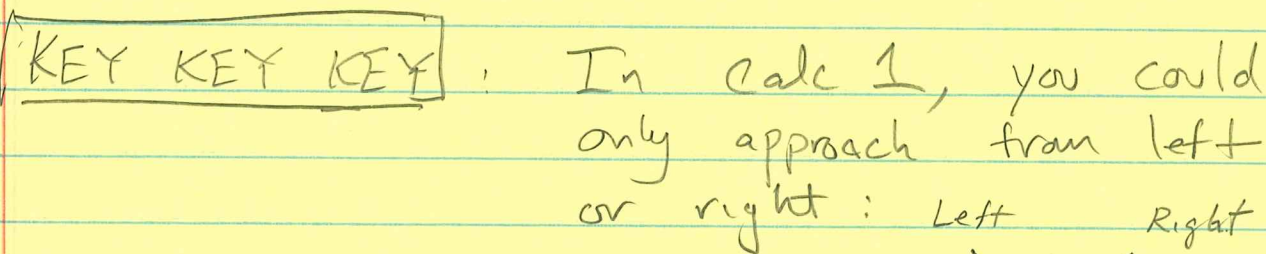 KEY KEY KEY : In Calc 1, you could
only approach from left
or right : Left Right